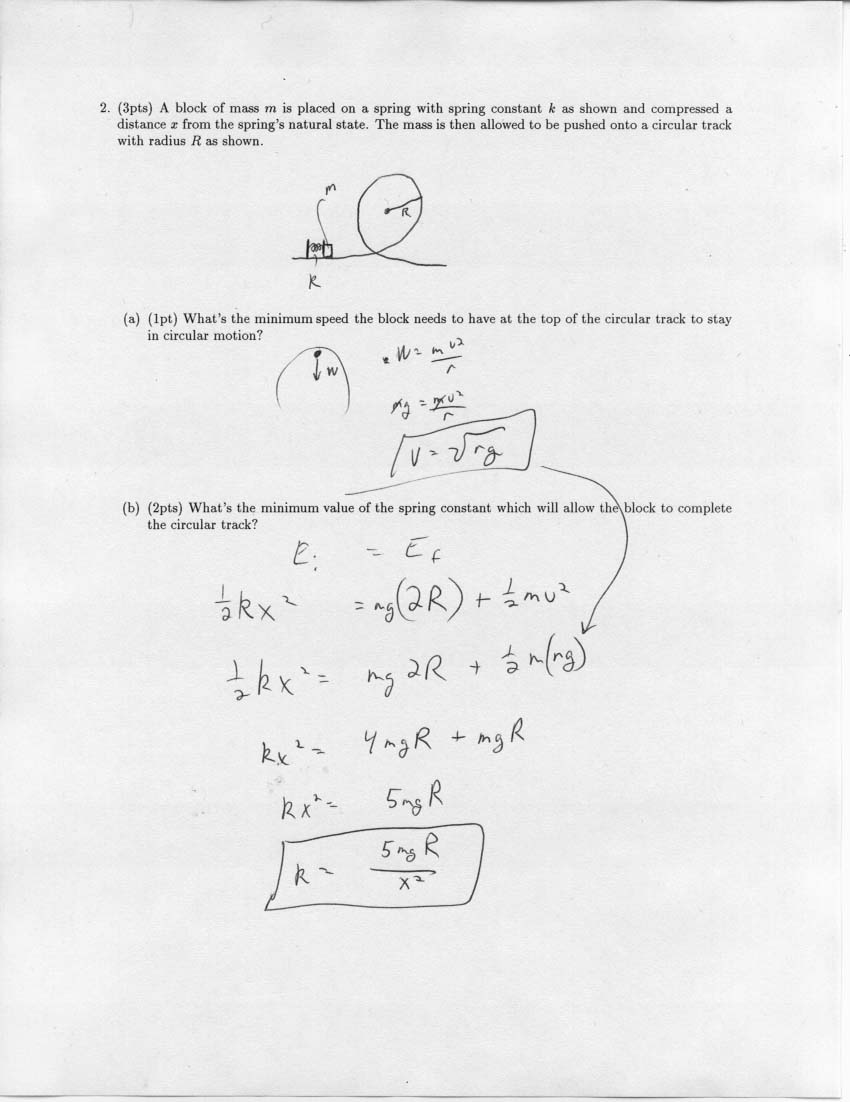 2. (3pts) A block of mass m is placed on a spring with spring constant k as shown and compressed a
distance x from the spring's natural state. The mass is then allowed to be pushed onto a circular track
with radius R as shown.
m
R
k
(a) (1pt) What's the minimum speed the block needs to have at the top of the circular track to stay
in circular motion?
W
W = mv²/r
mg = mv²/r
v = √rg
(b) (2pts) What's the minimum value of the spring constant which will allow the block to complete
the circular track?
Eᵢ = E_f
½kx² = mg(2R) + ½mv²
½kx² = mg2R + ½m(rg)
kx² = 4mgR + mgR
kx² = 5mgR
k = 5mgR/x²